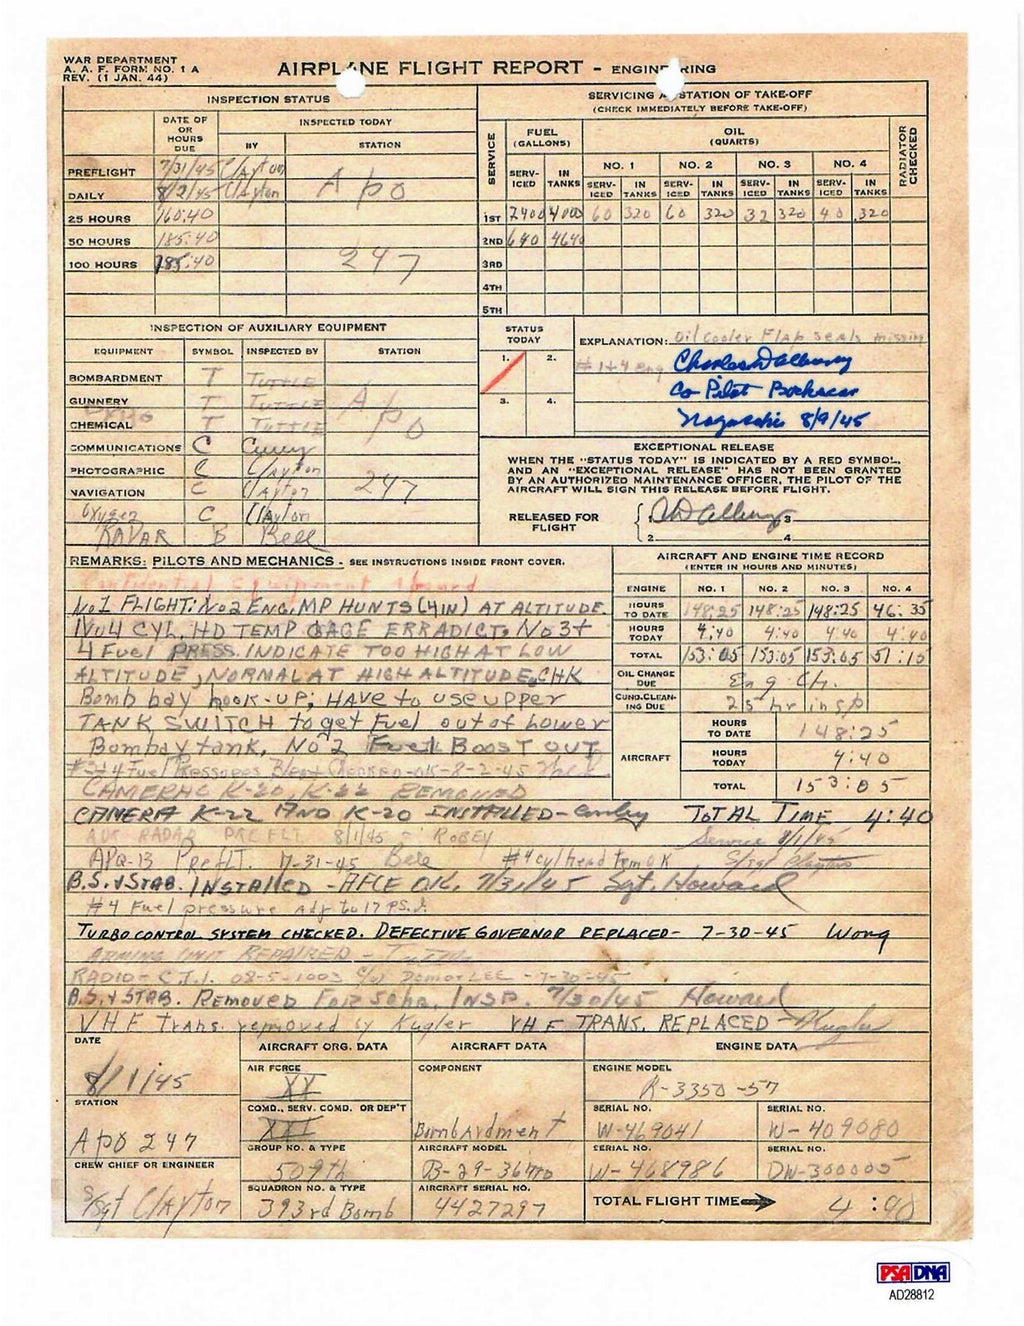 WAR DEPARTMENT
A. A. F. FORM NO. 1 A
REV. (1 JAN. 44)
AIRPLANE FLIGHT REPORT - ENGINEERING
INSPECTION STATUS
DATE OF OR HOURS DUE
INSPECTED TODAY
BY
STATION
PREFLIGHT 7/31/45 Clayton Apo
DAILY 8/2/45 Clayton
25 HOURS 160:40
50 HOURS 185:40
100 HOURS 185:40 247
SERVICING AT STATION OF TAKE-OFF
(CHECK IMMEDIATELY BEFORE TAKE-OFF)
SERVICE
FUEL (GALLONS)
OIL (QUARTS)
RADIATOR CHECKED
NO. 1 NO. 2 NO. 3 NO. 4
SERV-ICED IN TANKS SERV-ICED IN TANKS SERV-ICED IN TANKS SERV-ICED IN TANKS SERV-ICED IN TANKS
1ST 2400 4000 60 320 60 320 32 320 40 320
2ND 640 4640
3RD
4TH
5TH
INSPECTION OF AUXILIARY EQUIPMENT
EQUIPMENT SYMBOL INSPECTED BY STATION
BOMBARDMENT T TUTTLE
GUNNERY T TUTTLE Apo
CHEMICAL T TUTTLE
COMMUNICATIONS C
PHOTOGRAPHIC C Clayton
NAVIGATION C Clayton 247
Oxygen C Clayton
RADAR B Bell
STATUS TODAY
1. 2.
3. 4.
EXPLANATION: Oil Cooler Flap seals missing
#1+4 eng
Charles D Albury
Co Pilot Bockscar
Nagasaki 8/9/45
EXCEPTIONAL RELEASE
WHEN THE "STATUS TODAY" IS INDICATED BY A RED SYMBOL,
AND AN "EXCEPTIONAL RELEASE" HAS NOT BEEN GRANTED
BY AN AUTHORIZED MAINTENANCE OFFICER, THE PILOT OF THE
AIRCRAFT WILL SIGN THIS RELEASE BEFORE FLIGHT.
RELEASED FOR FLIGHT
1. CD Albury 3.
2. 4.
REMARKS: PILOTS AND MECHANICS - SEE INSTRUCTIONS INSIDE FRONT COVER.
Confidential Equipment Aboard
No1 FLIGHT: No2 ENG. MP HUNTS (4IN) AT ALTITUDE.
No4 CYL. HD TEMP GAGE ERRADICT. No 3+
4 Fuel PRESS. INDICATE TOO HIGH AT LOW
ALTITUDE, NORMAL AT HIGH ALTITUDE, CHK
Bomb bay hook-up; HAVE to use upper
TANK SWITCH to get Fuel out of Lower
Bombay tank, No 2 Fuel BOOST OUT
CAMERAS K-20, K-22 REMOVED
CAMERA K-22 AND K-20 INSTALLED - TOTAL TIME 4:40
AUX RADAR PREFLT 8/1/45 - ROBEY Service 8/1/45
APQ-13 PREFLT. 7-31-45 Bell #4 cyl head tem OK S/Sgt Clayton
B.S. & STAB. INSTALLED - AFCE OK. 7/31/45 Sgt. Howard
#4 Fuel pressure adj to 17 P.S.I.
TURBO CONTROL SYSTEM CHECKED. DEFECTIVE GOVERNOR REPLACED - 7-30-45 Wong
ARMING UNIT REPAIRED -
RADIO - C.T.I. 08-5-1003 C/W - 7-30-45
B.S. & STAB. REMOVED FOR 50hr. INSP. 7/30/45 Howard
VHF Trans. removed by Kugler VHF TRANS. REPLACED - Kugler
AIRCRAFT AND ENGINE TIME RECORD
(ENTER IN HOURS AND MINUTES)
ENGINE NO. 1 NO. 2 NO. 3 NO. 4
HOURS TO DATE 148:25 148:25 148:25 46:35
HOURS TODAY 4:40 4:40 4:40 4:40
TOTAL 153:05 153:05 153:05 51:15
OIL CHANGE DUE Eng Ch.
CUNO. CLEANING DUE 25 hr insp
AIRCRAFT
HOURS TO DATE 148:25
HOURS TODAY 4:40
TOTAL 153:05
DATE
8/1/45
STATION
Apo 247
CREW CHIEF OR ENGINEER
S/Sgt Clayton
AIRCRAFT ORG. DATA
AIR FORCE
XX
COMD., SERV. COMD. OR DEP'T
XXI
GROUP NO. & TYPE
509th
SQUADRON NO. & TYPE
393rd Bomb
AIRCRAFT DATA
COMPONENT
Bombardment
AIRCRAFT MODEL
B-29-36-MO
AIRCRAFT SERIAL NO.
4427297
ENGINE DATA
ENGINE MODEL
R-3350-57
SERIAL NO. SERIAL NO.
W-469041 W-409080
SERIAL NO. SERIAL NO.
W-468986 DW-300005
TOTAL FLIGHT TIME 4:40
PSA DNA
AD28812